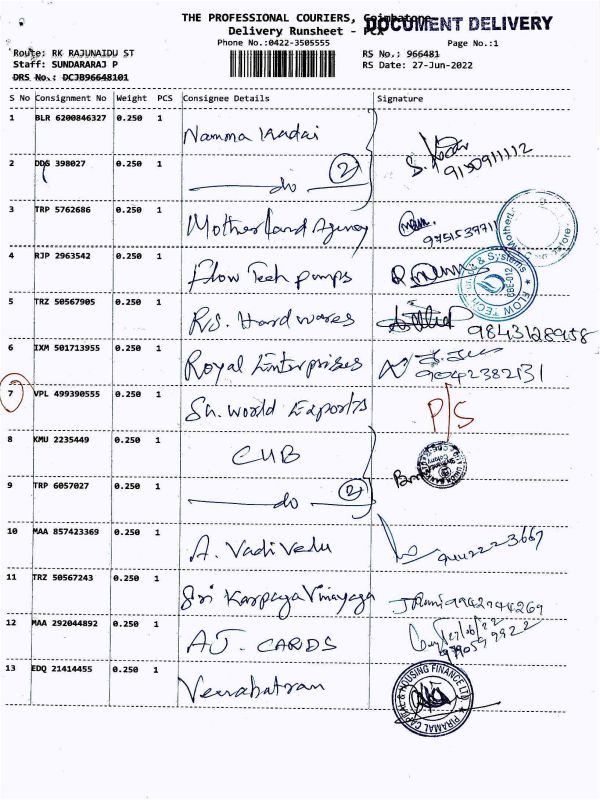 THE PROFESSIONAL COURIERS, Coimbatore
DOCUMENT DELIVERY
Delivery Runsheet - PCX
Phone No.:0422-3505555
Page No.:1
Route: RK RAJUNAIDU ST
RS No.: 966481
Staff: SUNDARARAJ P
RS Date: 27-Jun-2022
DRS No.: DCJB96648101
S No Consignment No Weight PCS Consignee Details Signature
1 BLR 6200846327 0.250 1 Namma Kadai 9150911112
2 DDS 398027 0.250 1 do 2
3 TRP 5762686 0.250 1 Motherland Agency 9751539711
4 RJP 2963542 0.250 1 Flow Tech pumps
& Systems FLOW TECH CBE-012
5 TRZ 50567905 0.250 1 RS. Hardwares 9843128958
6 IXM 501713955 0.250 1 Royal Enterprises 9042382131
7 VPL 499390555 0.250 1 Sh. world Exports P/S
8 KMU 2235449 0.250 1 CUB
9 TRP 6057027 0.250 1 do 2
10 MAA 857423369 0.250 1 A. Vadivelu
11 TRZ 50567243 0.250 1 Sri Karpaga Vinayaga 9942744269
12 MAA 292044892 0.250 1 AJ. CARDS 27/06/22
9790599922
13 EDQ 21414455 0.250 1 Venkatraman
PIRAMAL CAPITAL & HOUSING FINANCE LTD